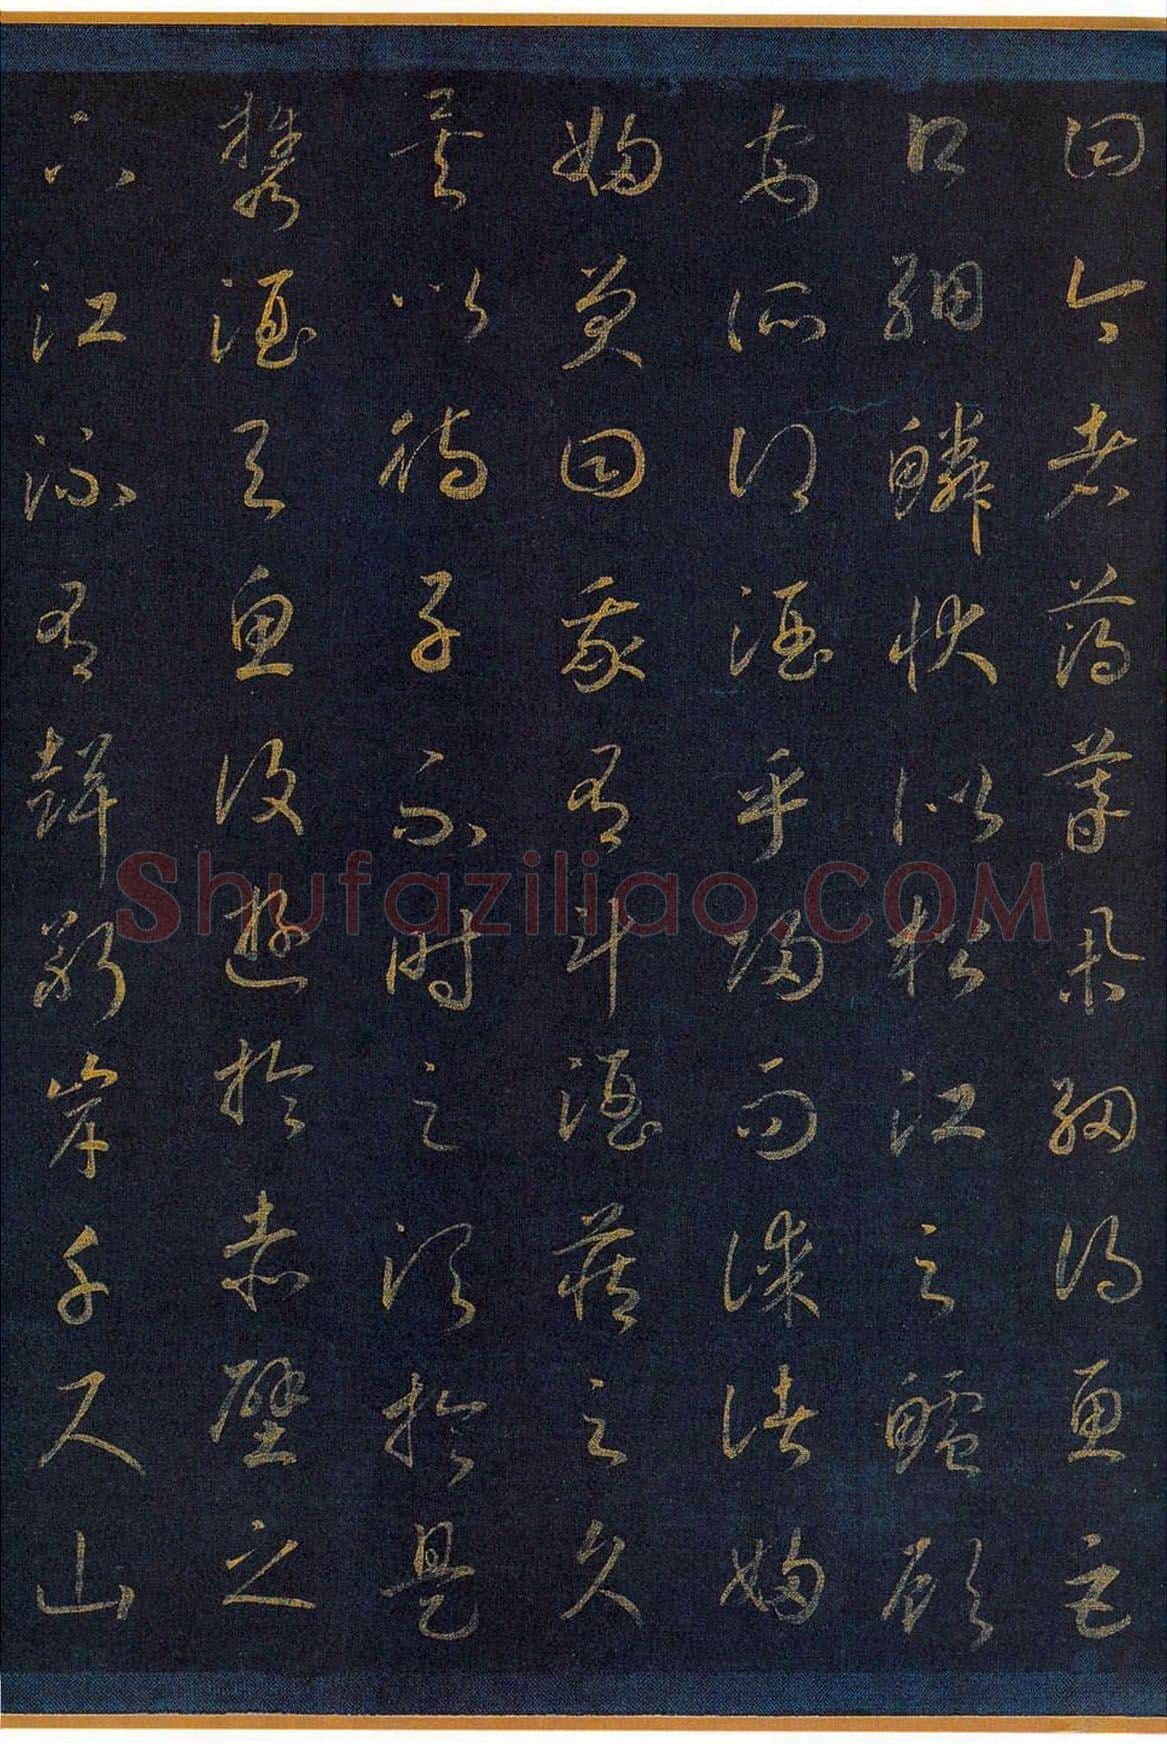 曰今者薄暮舉網得魚巨
口細鱗狀似松江之鱸顧
安所得酒乎歸而謀諸婦
婦曰我有斗酒藏之久
矣以待子不時之須於是
攜酒與魚復遊於赤壁之
下江流有聲斷岸千尺山
Shufaziliao.COM